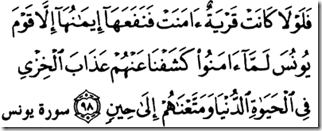 فَلَوْلَا كَانَتْ قَرْيَةٌ ءَامَنَتْ فَنَفَعَهَآ إِيمَٰنُهَآ إِلَّا قَوْمَ
يُونُسَ لَمَّآ ءَامَنُوا۟ كَشَفْنَا عَنْهُمْ عَذَابَ ٱلْخِزْىِ
فِى ٱلْحَيَوٰةِ ٱلدُّنْيَا وَمَتَّعْنَٰهُمْ إِلَىٰ حِينٍ ﴿٩٨﴾ سورة يونس